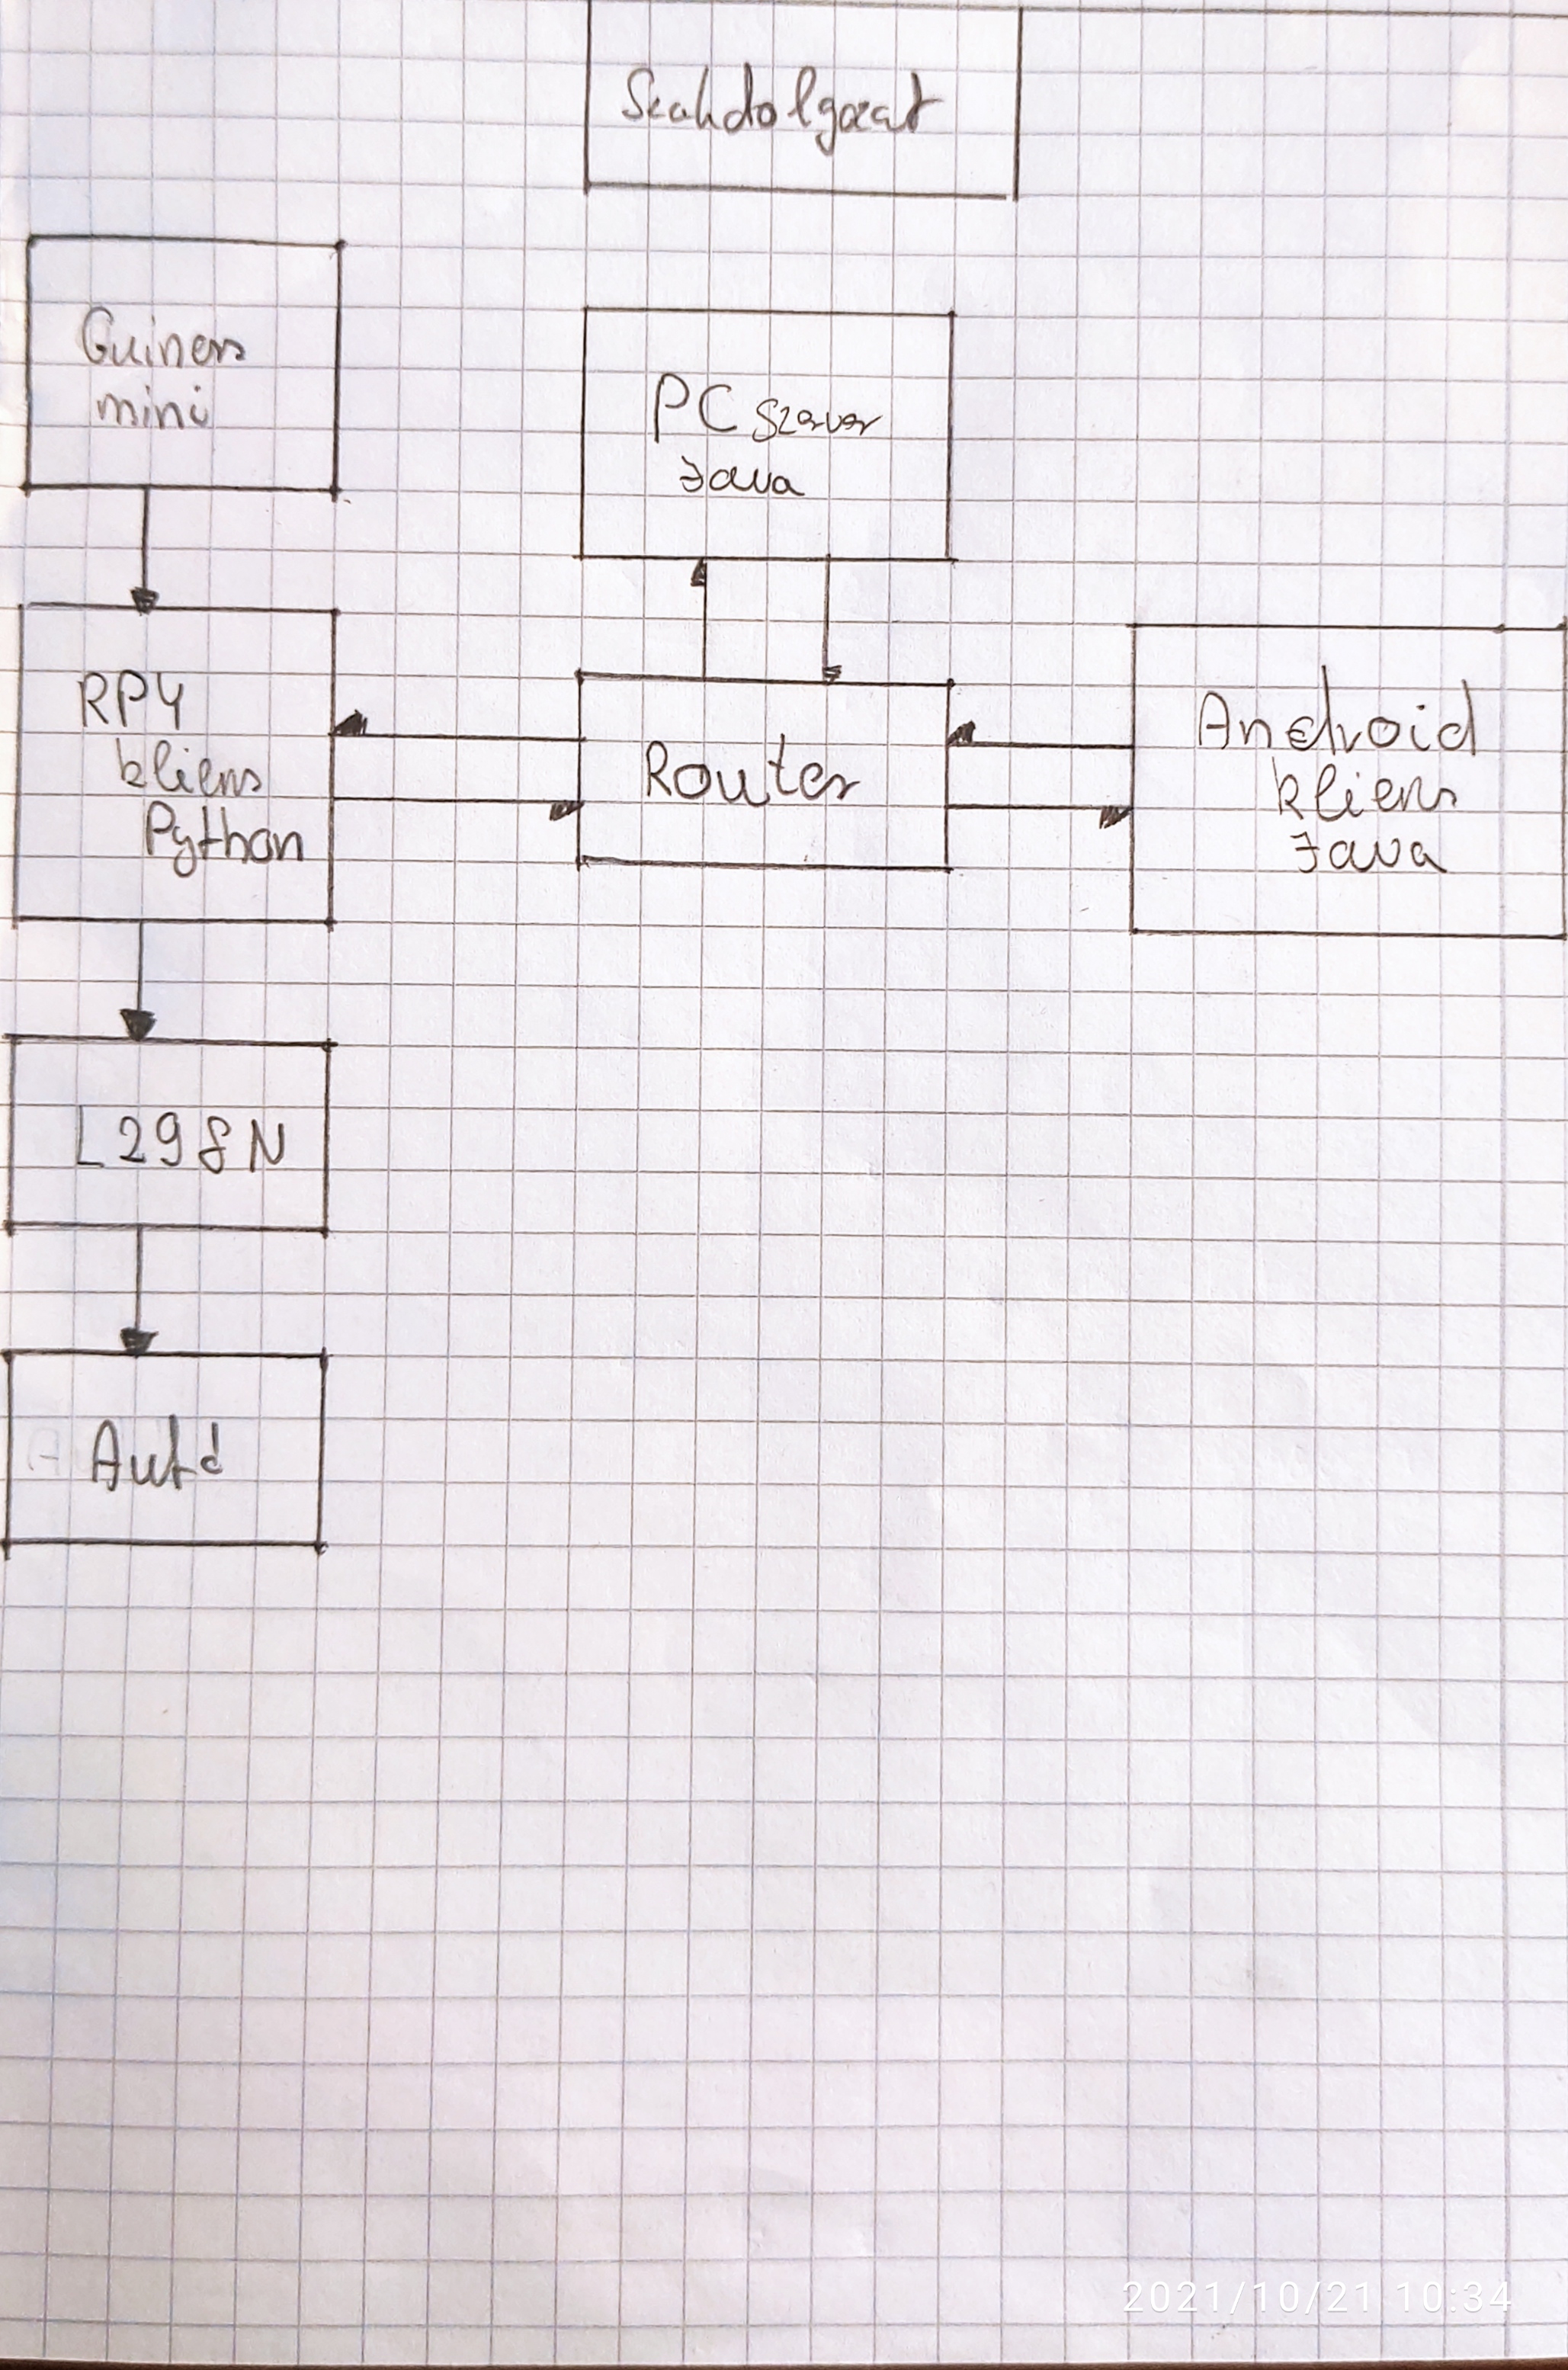 Szakdolgozat
Guinens
mini
PC szerver
Java
RP4
kliens
Python
Router
Android
kliens
Java
L298N
Autó
2021/10/21 10:34